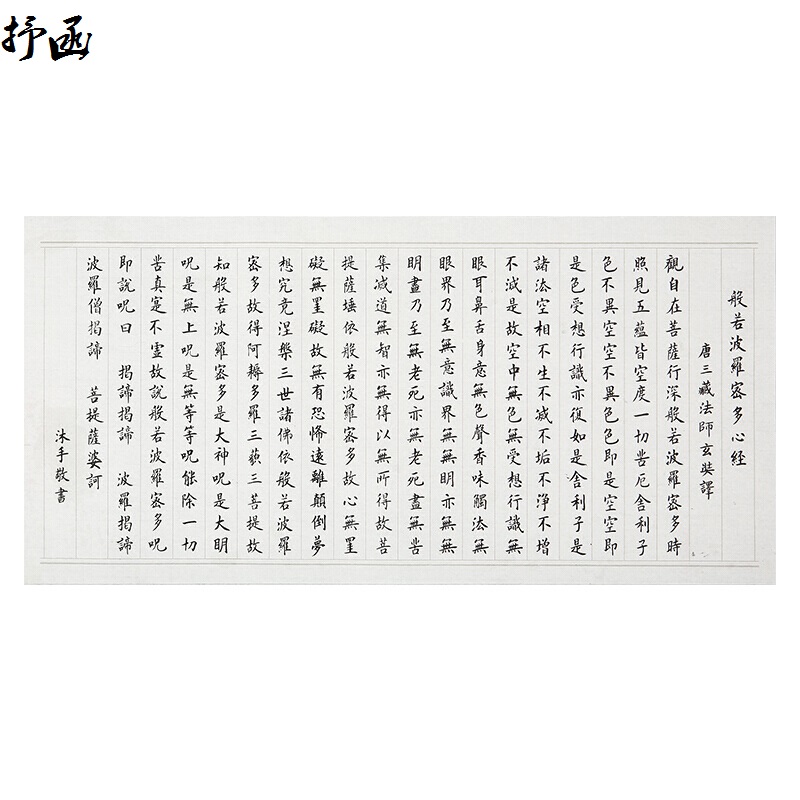 抒函
般若波羅蜜多心經
唐三藏法師玄奘譯
觀自在菩薩行深般若波羅蜜多時
照見五蘊皆空度一切苦厄舍利子
色不異空空不異色色即是空空即
是色受想行識亦復如是舍利子是
諸法空相不生不滅不垢不淨不增
不減是故空中無色無受想行識無
眼耳鼻舌身意無色聲香味觸法無
眼界乃至無意識界無無明亦無無
明盡乃至無老死亦無老死盡無苦
集滅道無智亦無得以無所得故菩
提薩埵依般若波羅蜜多故心無罣
礙無罣礙故無有恐怖遠離顛倒夢
想究竟涅槃三世諸佛依般若波羅
蜜多故得阿耨多羅三藐三菩提故
知般若波羅蜜多是大神呪是大明
呪是無上呪是無等等呪能除一切
苦真寔不虛故說般若波羅蜜多呪
即說呪曰 揭諦揭諦 波羅揭諦
波羅僧揭諦 菩提薩婆訶
沐手敬書